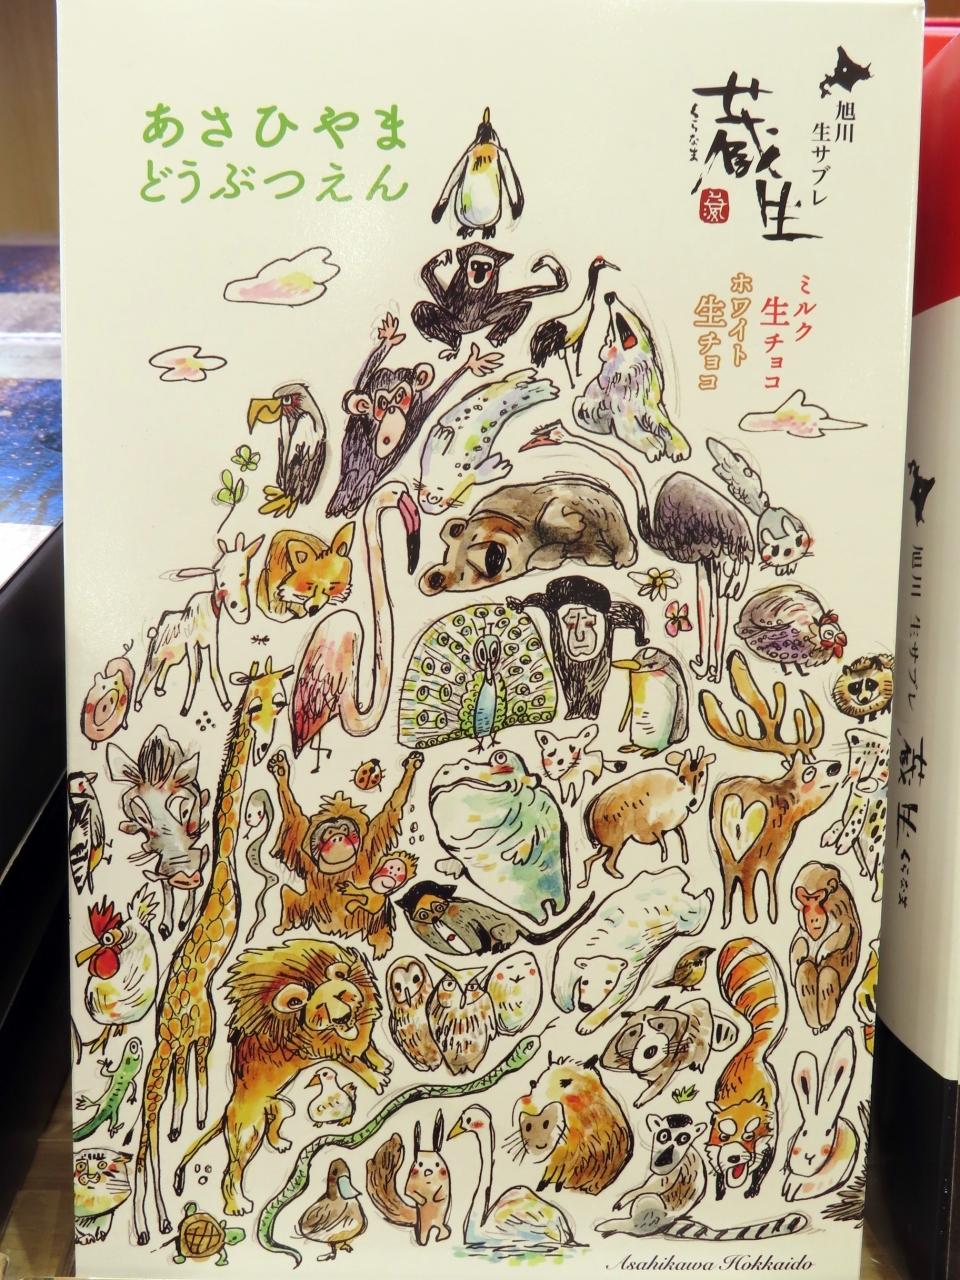 あさひやま
どうぶつえん
旭川
生サブレ
蔵生
くらなま
ミルク
生チョコ
ホワイト
生チョコ
Asahikawa Hokkaido
旭川 生サブレ
蔵生
くらなま